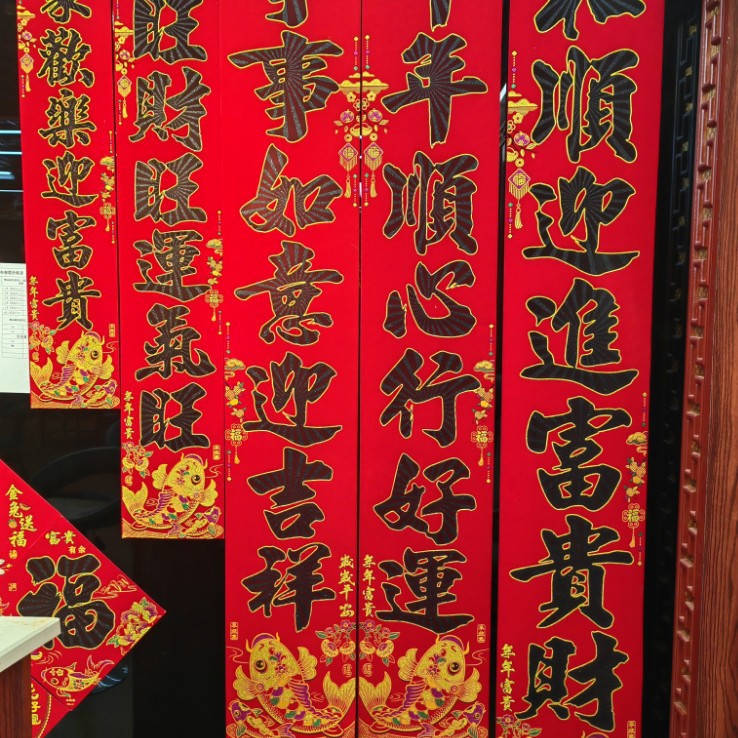 順迎進富貴財
年年富貴
年順心行好運
年年富貴
事如意迎吉祥
歲歲平安
旺財旺運氣旺
年年富貴
家歡樂迎富貴
年年富貴
金兔送福
富貴
有余
福